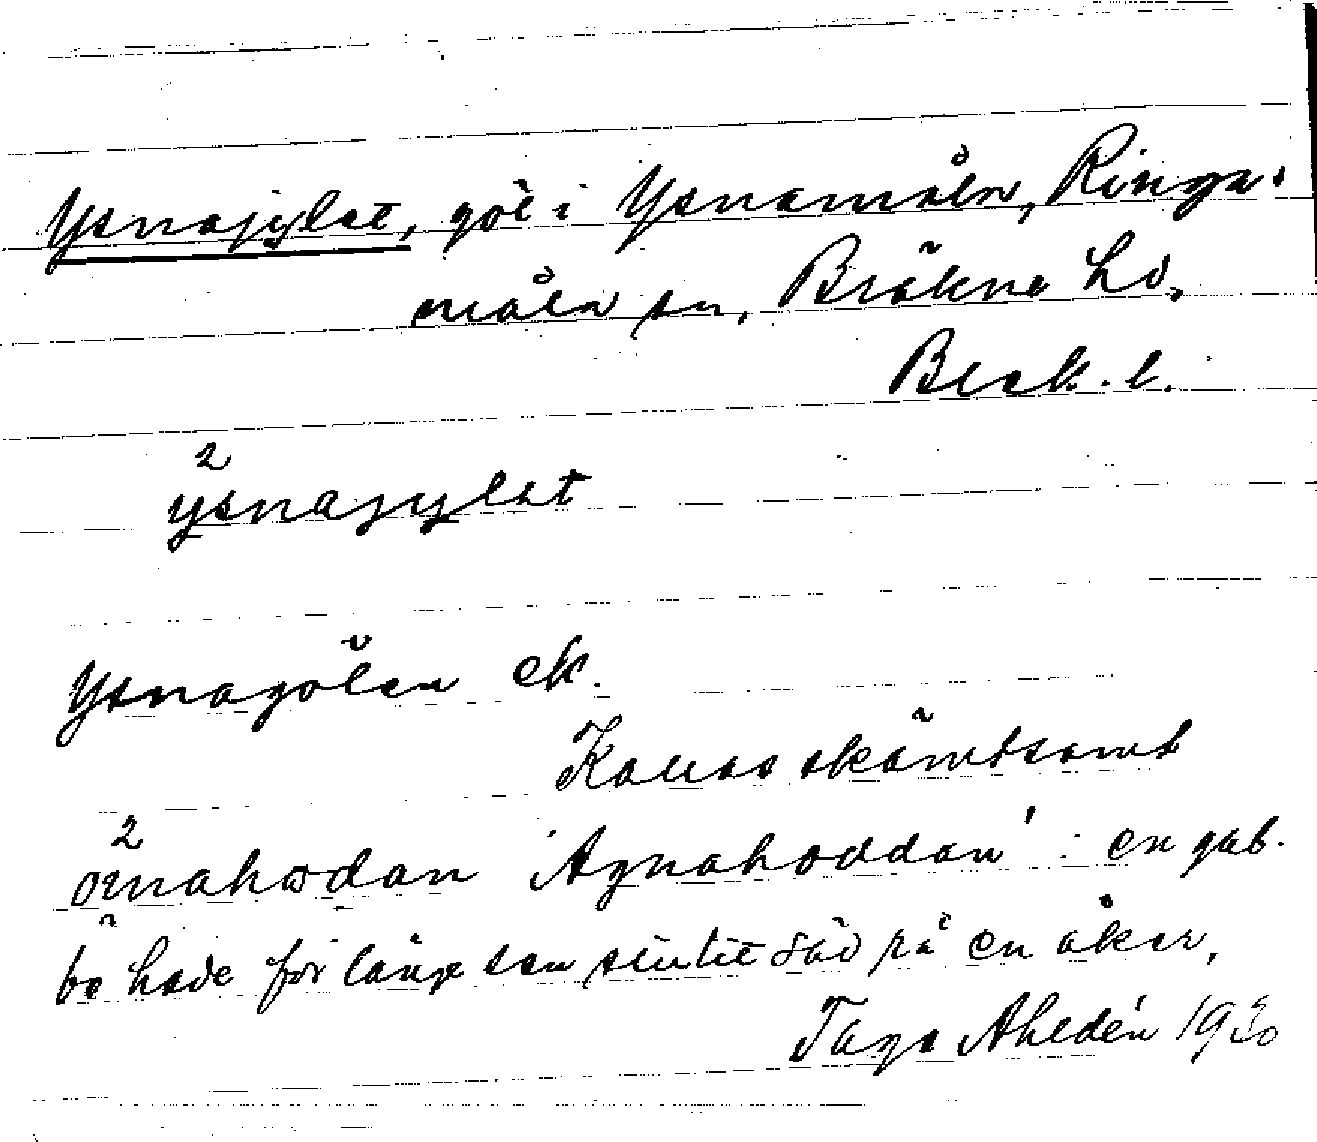 Ysnajylet, göl i Ysnamåla, Ringa-
måla sn, Bräkne hd,
Blek. l.
²ysnajylet
Ysnagölen ek.
Kallas skämtsamt
'Agnahoddan' : en gub-
be hade för länge sen en åker,
Tage Ahldén 1930